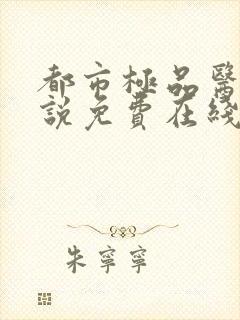 都市極品醫
說免費在綫
朱寧寧